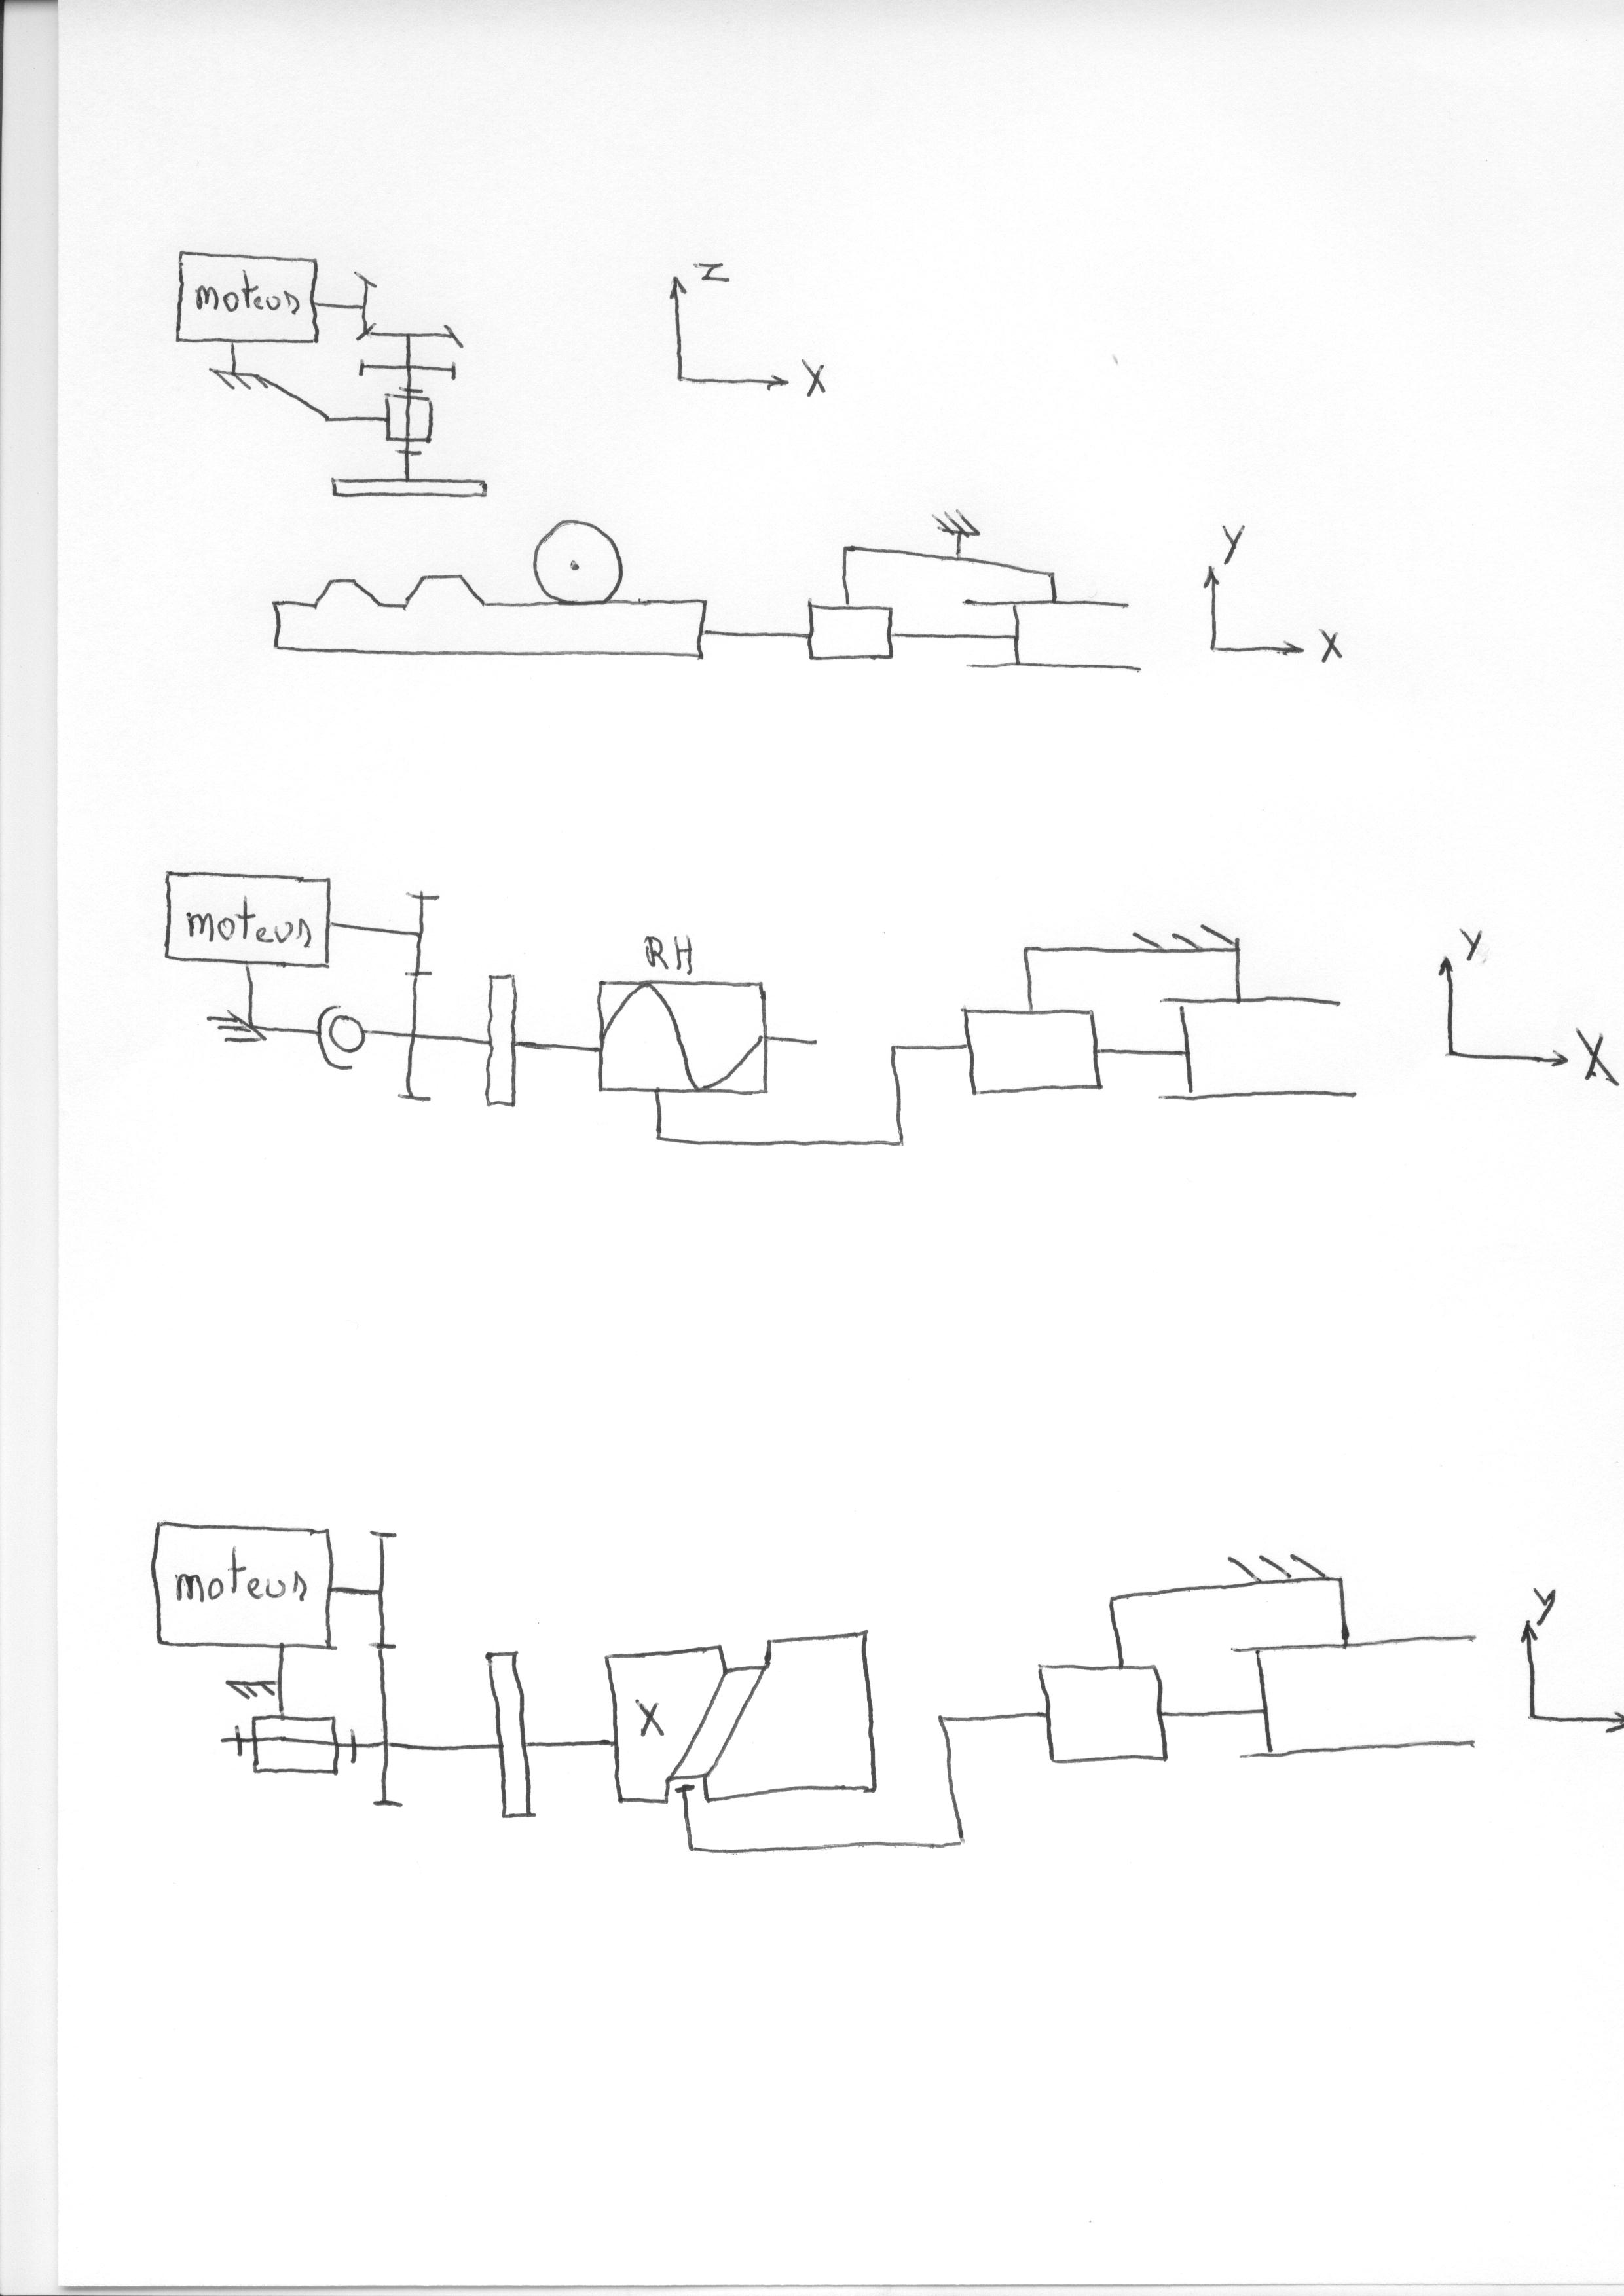 moteur
Z
X
Y
X
moteur
RH
Y
X
moteur
X
y